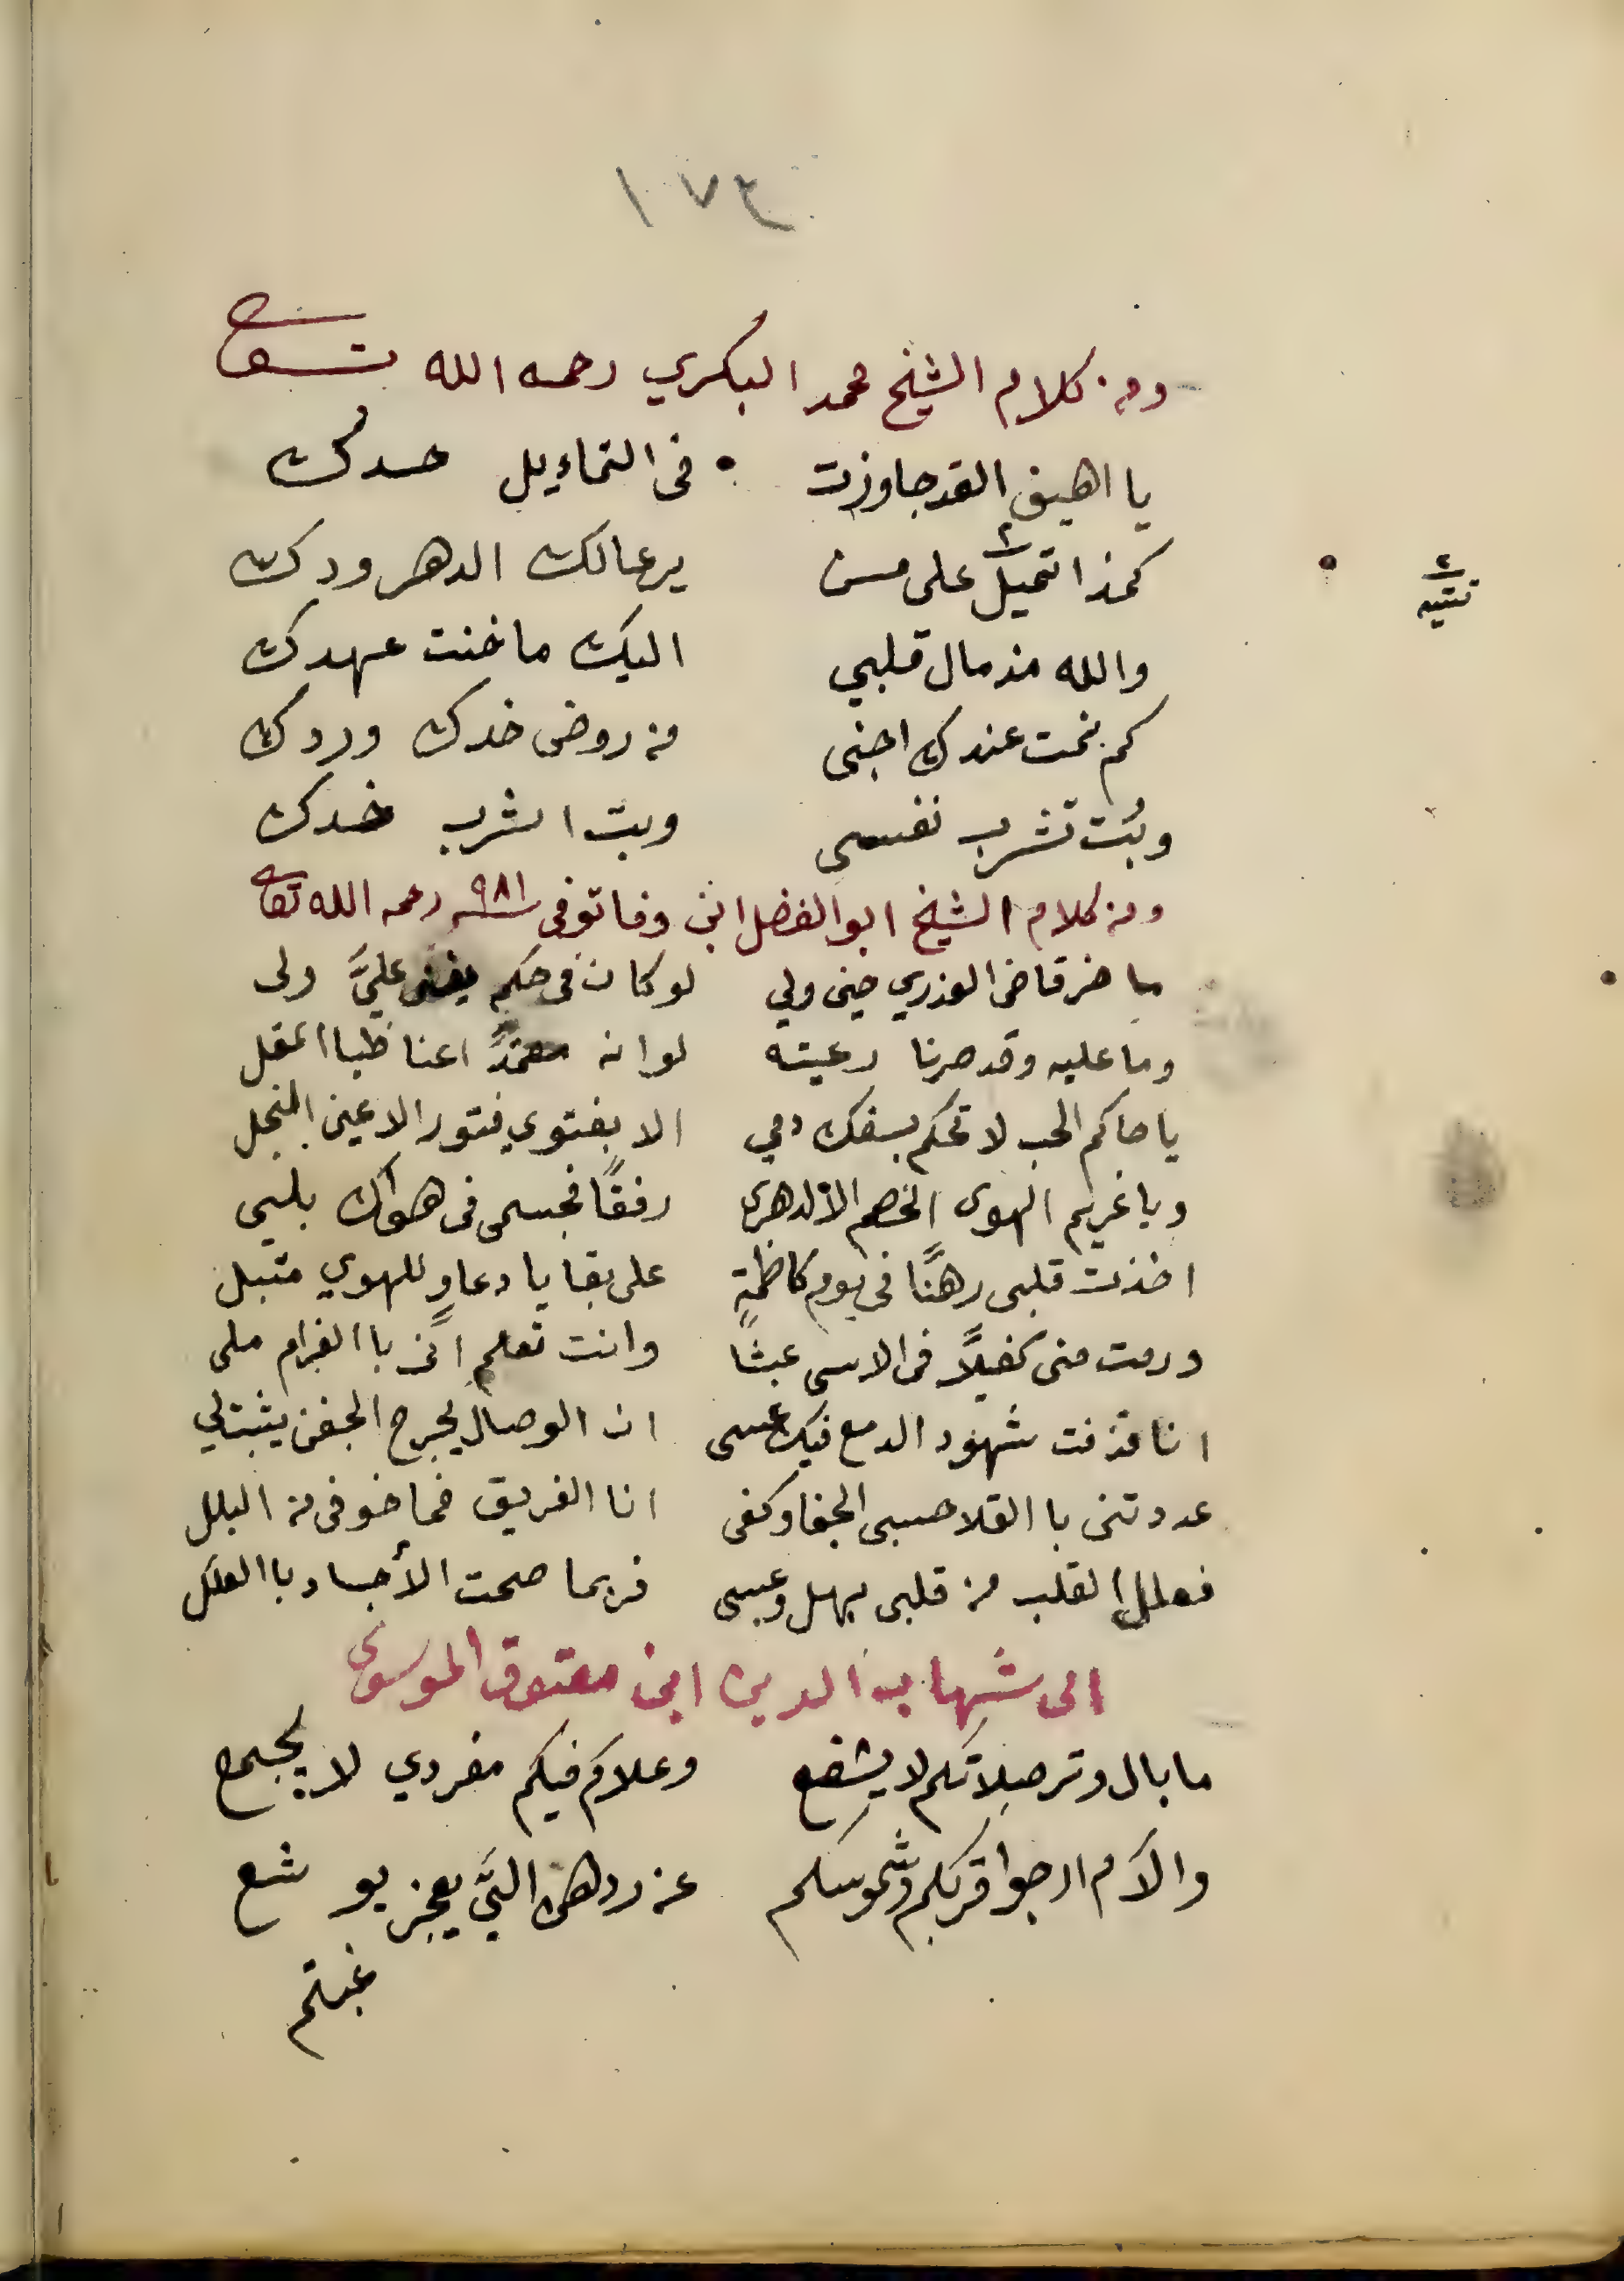 ١٧٣
ومن كلام الشيخ محمد البكري رحمه الله تعالى
يا اهيف القد جاوزت • فى التماييل حدك
كمذا تميل على من يرعالك الدهر ودك
٤ تتيه
والله مذ مال قلبي اليك ما خنت عهدك
كم نمت عندك اجنى من روض خدك وردك
وبُت تشرب نفسى وبت اشرب خدك
ومن كلام الشيخ ابو الفضل ابن وفا توفى سنة ٩٨١ رحمه الله تعالى
ما ضر قاضى العذري حين ولي لو كان فى حكم يقضى عليَّ ولى
وما عليه وقد صرنا رعيته لو انه مغمدًا عنا ظبا المقل
يا حاكم الحب لا تحكم بسفك دمي الا بفتوي فتور الاعين النجل
ويا غريم الهوى الخصم الالد هوى رفقًا فجسمى فى هواك بلىي
اخذت قلبى رهنًا فى يوم كاظمةٍ على بقايا دعاوٍ للهوي قبل
ورمت منى كفيلاً فى الاسى عبثًا وانت تعلم انى با الغرام ملى
انا قذفت شهود الدمع فيك عسى ان الوصال يجرح الجفن يثبت لي
عددتنى با القلا حسبى الجفا وكفى انا الغريق فما خوفى من البلل
فعلل القلب من قلبى بهل وعسى فربما صحت الأجساد با العلل
الى شهاب الدين ابن معتوق الموسوى
ما بال وتر صِلاتكم لا يشفع وعلاكم فيكم مفردي لا يجمع
والآم ارجوا قربكم وشموسكم عن ردهن اليَّ يعجز يوشع
غبتم